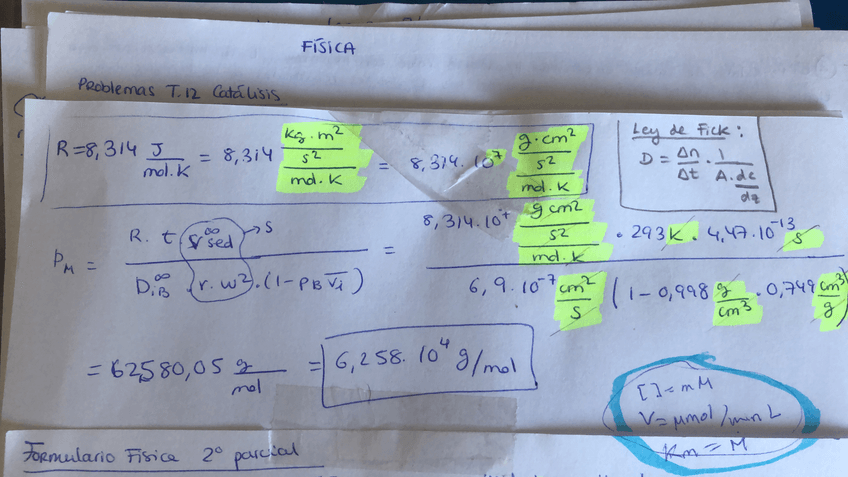 FÍSICA
Problemas T.12 Catálisis
R=8,314 J/mol.K = 8,314 kg.m²/s²/mol.K = 8,314.10⁷ g.cm²/s²/mol.K
Ley de Fick:
D = Δn/Δt . 1/A.dc/dz
PM = R. t V∞sed → s / D∞iB . r.w².(1-PB V̄i) = 8,314.10⁷ g cm²/s²/mol.K . 293K . 4,47.10⁻¹³ s / 6,9.10⁻⁷ cm²/s (1-0,998 g/cm³ . 0,749 cm³/g)
= 62580,05 g/mol = 6,258.10⁴ g/mol
[]=mM
V=μmol/min L
Km = M
Formulario Física 2º parcial